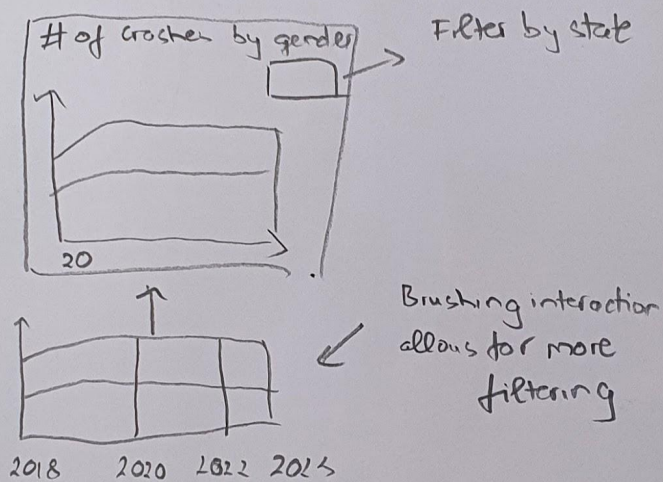 # of crashes by gender
Filter by state
20
Brushing interaction
allows for more
filtering
2018 2020 2022 2023